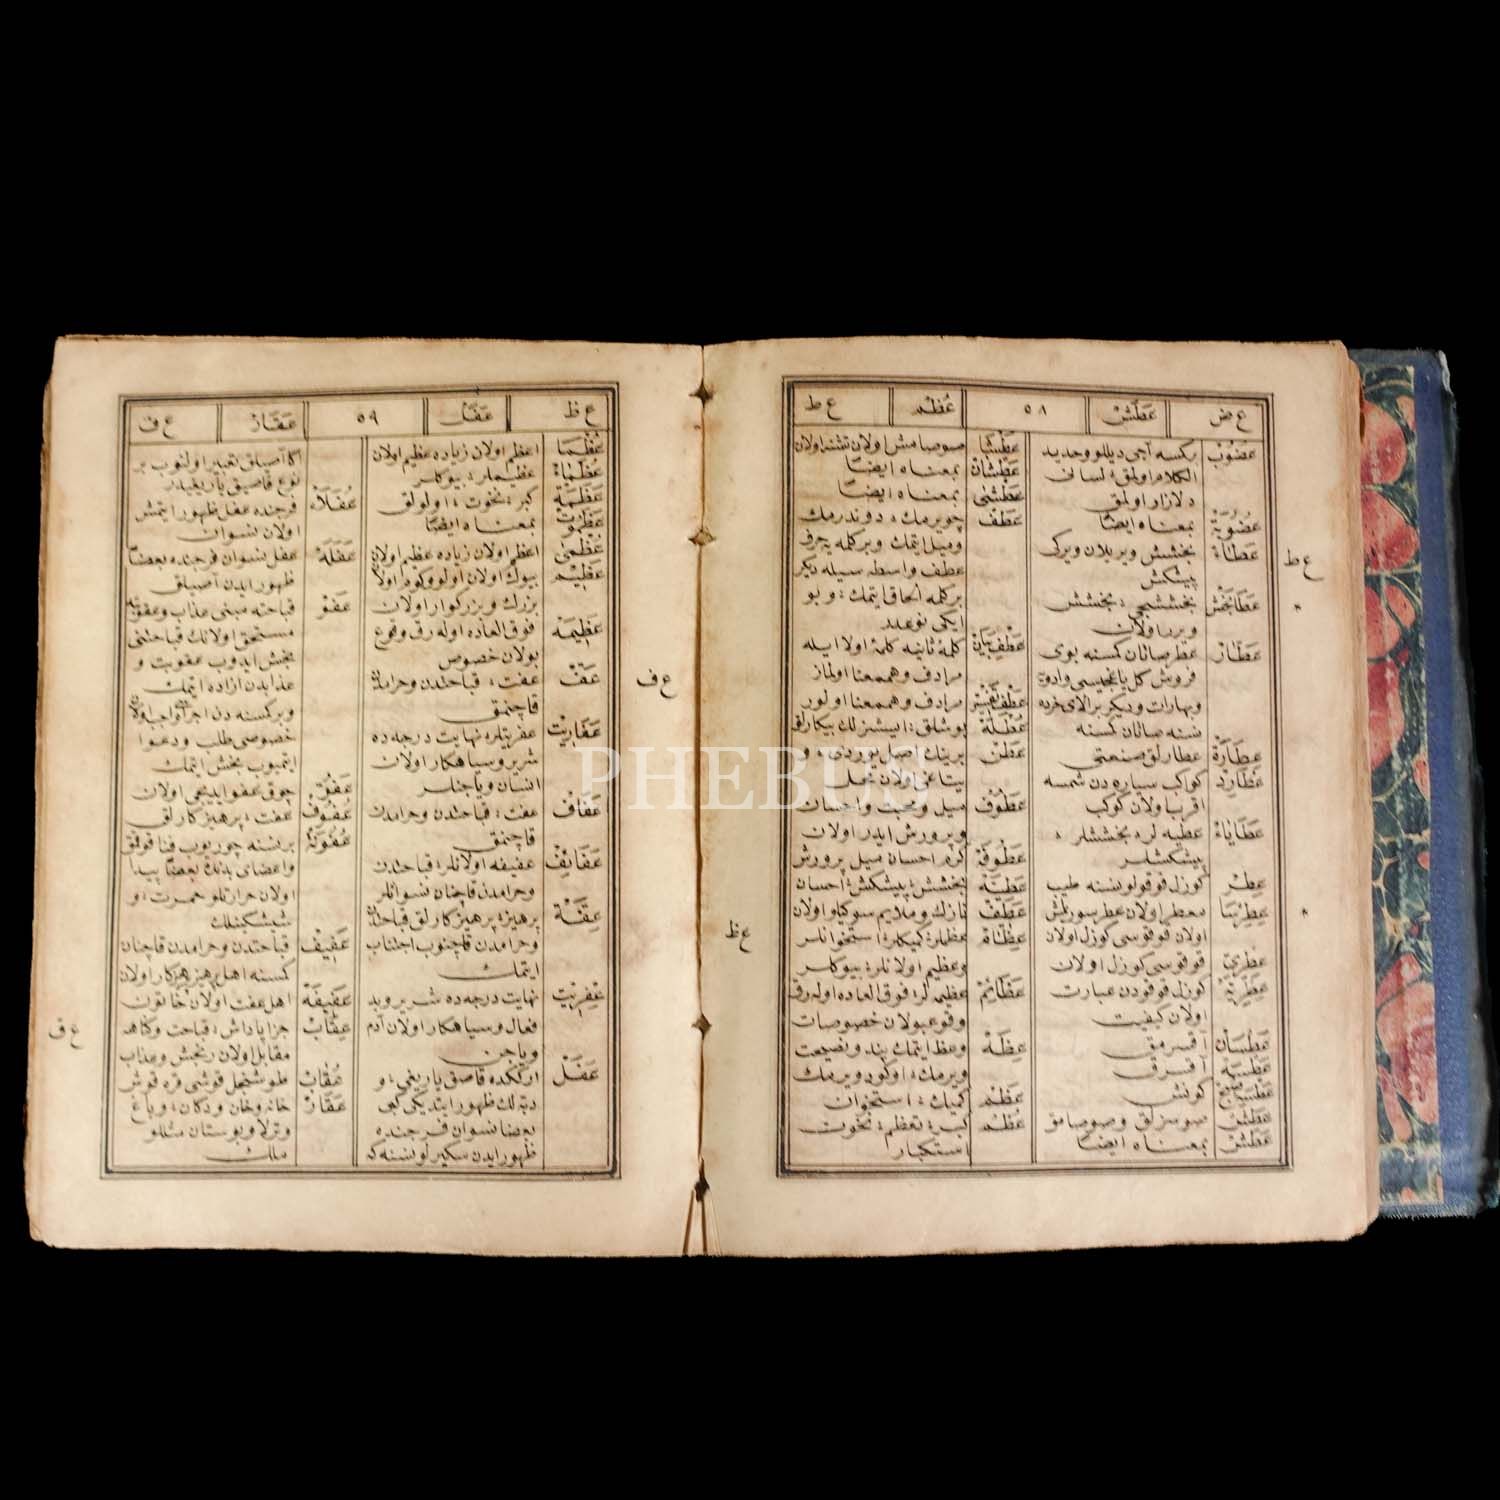 ع ض عَطَشْ ٥٨ عُظْم ع ط
عَضُوبْ بركسنه آجی دیللو وحدید
الکلام اولمق؛ لسانی
دلازار اولمق
عُضُوبَةْ بمعناه ایضًا
عَطَاءْ بخشش ویریلان ویرکی
پیشکش
عَطَابَخْشْ بخششجی؛ بخشش
ویرر اولان
عَطَّارْ عطر صاتان کسنه بوی
فروش کل یاغجیسی وادویه
وبهارات ودیکر برالای خرده
نسنه صاتان کسنه
عِطَارَةْ عطارلق صنعتی
عُطَارِدْ کواکب سیاره دن شمسه
اقرب اولان کوکب
عَطَایَاءْ عطیه لر؛ بخششلر؛
پیشکشلر
عِطِرْ کوزل قوقولو نسنه طیب
معطر اولان عطر سورلمش
اولان قوقوسی کوزل اولان
عِطْرِی قوقوسی کوزل اولان
عِطْرِیَّتْ کوزل قوقودن عبارت
اولان کیفیت
عَطْسَانْ آقسرمق
عَطْسَهْ آقسرق
کونش
عَطَشْ صوسزلق وصوصامق
عَطَشْ بمعناه ایضًا
صوصامش اولان تشنه اولان
عَطْشَانْ بمعناه ایضًا
عَطْشٰی بمعناه ایضًا
عَطْفْ چویرمك؛ دوندرمك
ومیل ایتمك وبر کلمه یی حرف
عطف واسطه سیله دیکر
برکلمه الحاق ایتمك؛ وبو
ایکی نوعدر
کلمهٔ ثانیه کلمهٔ اولا ایله
مرادف وهممعنا اولماز
مرادف وهممعنا اولور
عُطْلَةْ بوشلق؛ ایشسزلك بیکارلق
عَطَنْ
عَطُوفْ میل ومحبت واحسان
وپرورش ایدر اولان
عَطُوفَةْ کرم احسان میل پرورش
عَطِیَّةْ بخشش؛ پیشکش؛ احسان
نازك وملایم سوکیلو اولان
عِظَامْ عظملر؛ کمیکلر؛ استخوانلر
وعظیم اولانلر؛ بیوکلر
عَظَائِمْ عظیمه لر؛ فوق العاده اوله رق
وقوعبولان خصوصات
عِظَةْ وعظ ایتمك پند ونصیحت
ویرمك؛ اوکود ویرمك
عَظْمْ کمیك؛ استخوان
عُظْمْ کبر؛ تعظم؛ نخوت
استکبار
ع ط
ع ظ
ع ظ عَفَلْ ٥٩ عَقَارْ ع ف
عُظْمَا اعظم اولان زیاده عظیم اولان
عُظَمَاءْ عظیملر؛ بیوکلر
عَظَمَةْ کبر؛ نخوت؛ اولولق
عَظَمُوتْ بمعناه ایضًا
عُظْمٰی اعظم اولان زیاده عظیم اولان
عَظِیمْ بیوك اولان اولو وکوجه اولان
بزرك وبزرکوار اولان
عَظِیمَهْ فوق العاده اوله رق وقوع
بولان خصوص
عَفّْ عفت؛ قباحتدن وحرامدن
قاچنمق
عَفَارِیتْ عفریتلر؛ نهایت درجه ده
شریر وسیاهکار اولان
انسان ویا جنلر
عَفَافْ عفت؛ قباحتدن وحرامدن
قاچنمق
عَفَائِفْ عفیفه اولانلر؛ قباحتدن
وحرامدن قاچنان نسوانلر
عِفَّةْ پرهیز؛ پرهیزکارلق قباحتدن
وحرامدن قاچنوب اجتناب
ایتمك
عِفْرِیتْ نهایت درجه ده شریر وبد
فعال وسیاهکار اولان آدم
ویا جن
عَفَلْ ارککده قاصق یاریغی؛ و
دبه لك ظهور ایتدیکی کبی
بعضا نسوان فرجنده
ظهور ایدن سکیرلو نسنه که
اکا آصیلق تعبیر اولنوب بر
نوع قاصیق یاریغیدر
عَفْلَاءْ فرجنده عفل ظهور ایتمش
اولان نسوان
عَفَلَةْ عفل نسوان فرجنده بعضًا
ظهور ایدن آصیلق
عَفْوْ قباحته مبنی عذاب وعقوبته
مستحق اولانك قباحتنی
بخش ایدوب عقوبت و
عذابدن ازاده ایتمك
خصوصی طلب ودعوا
ایتمیوب بخش ایتمك
عَفُوّْ چوق عفو ایدیجی اولان
عُفُوفْ عفت؛ پرهیزکارلق
عُفُونَةْ برنسنه چوریوب فنا قوقمق
واعضای بدنك بعضًا پیدا
اولان حرارتلو حمرت؛ و
شیشکینلك
عَفِیفْ قباحتدن وحرامدن قاچنان
کسنه اهل پرهیز پرهیزکار اولان
عَفِیفَهْ اهل عفت اولان خاتون
عِقَابْ جزا پاداش؛ قباحت وکناهه
مقابل اولان رنجش وعذاب
عُقَابْ طوشنجل قوشی قره قوش
عَقَارْ خانه وخان ودکان؛ وباغ
وترلا وبوستان مثللو
ملك
ع ف
ع ق
PHEBUS